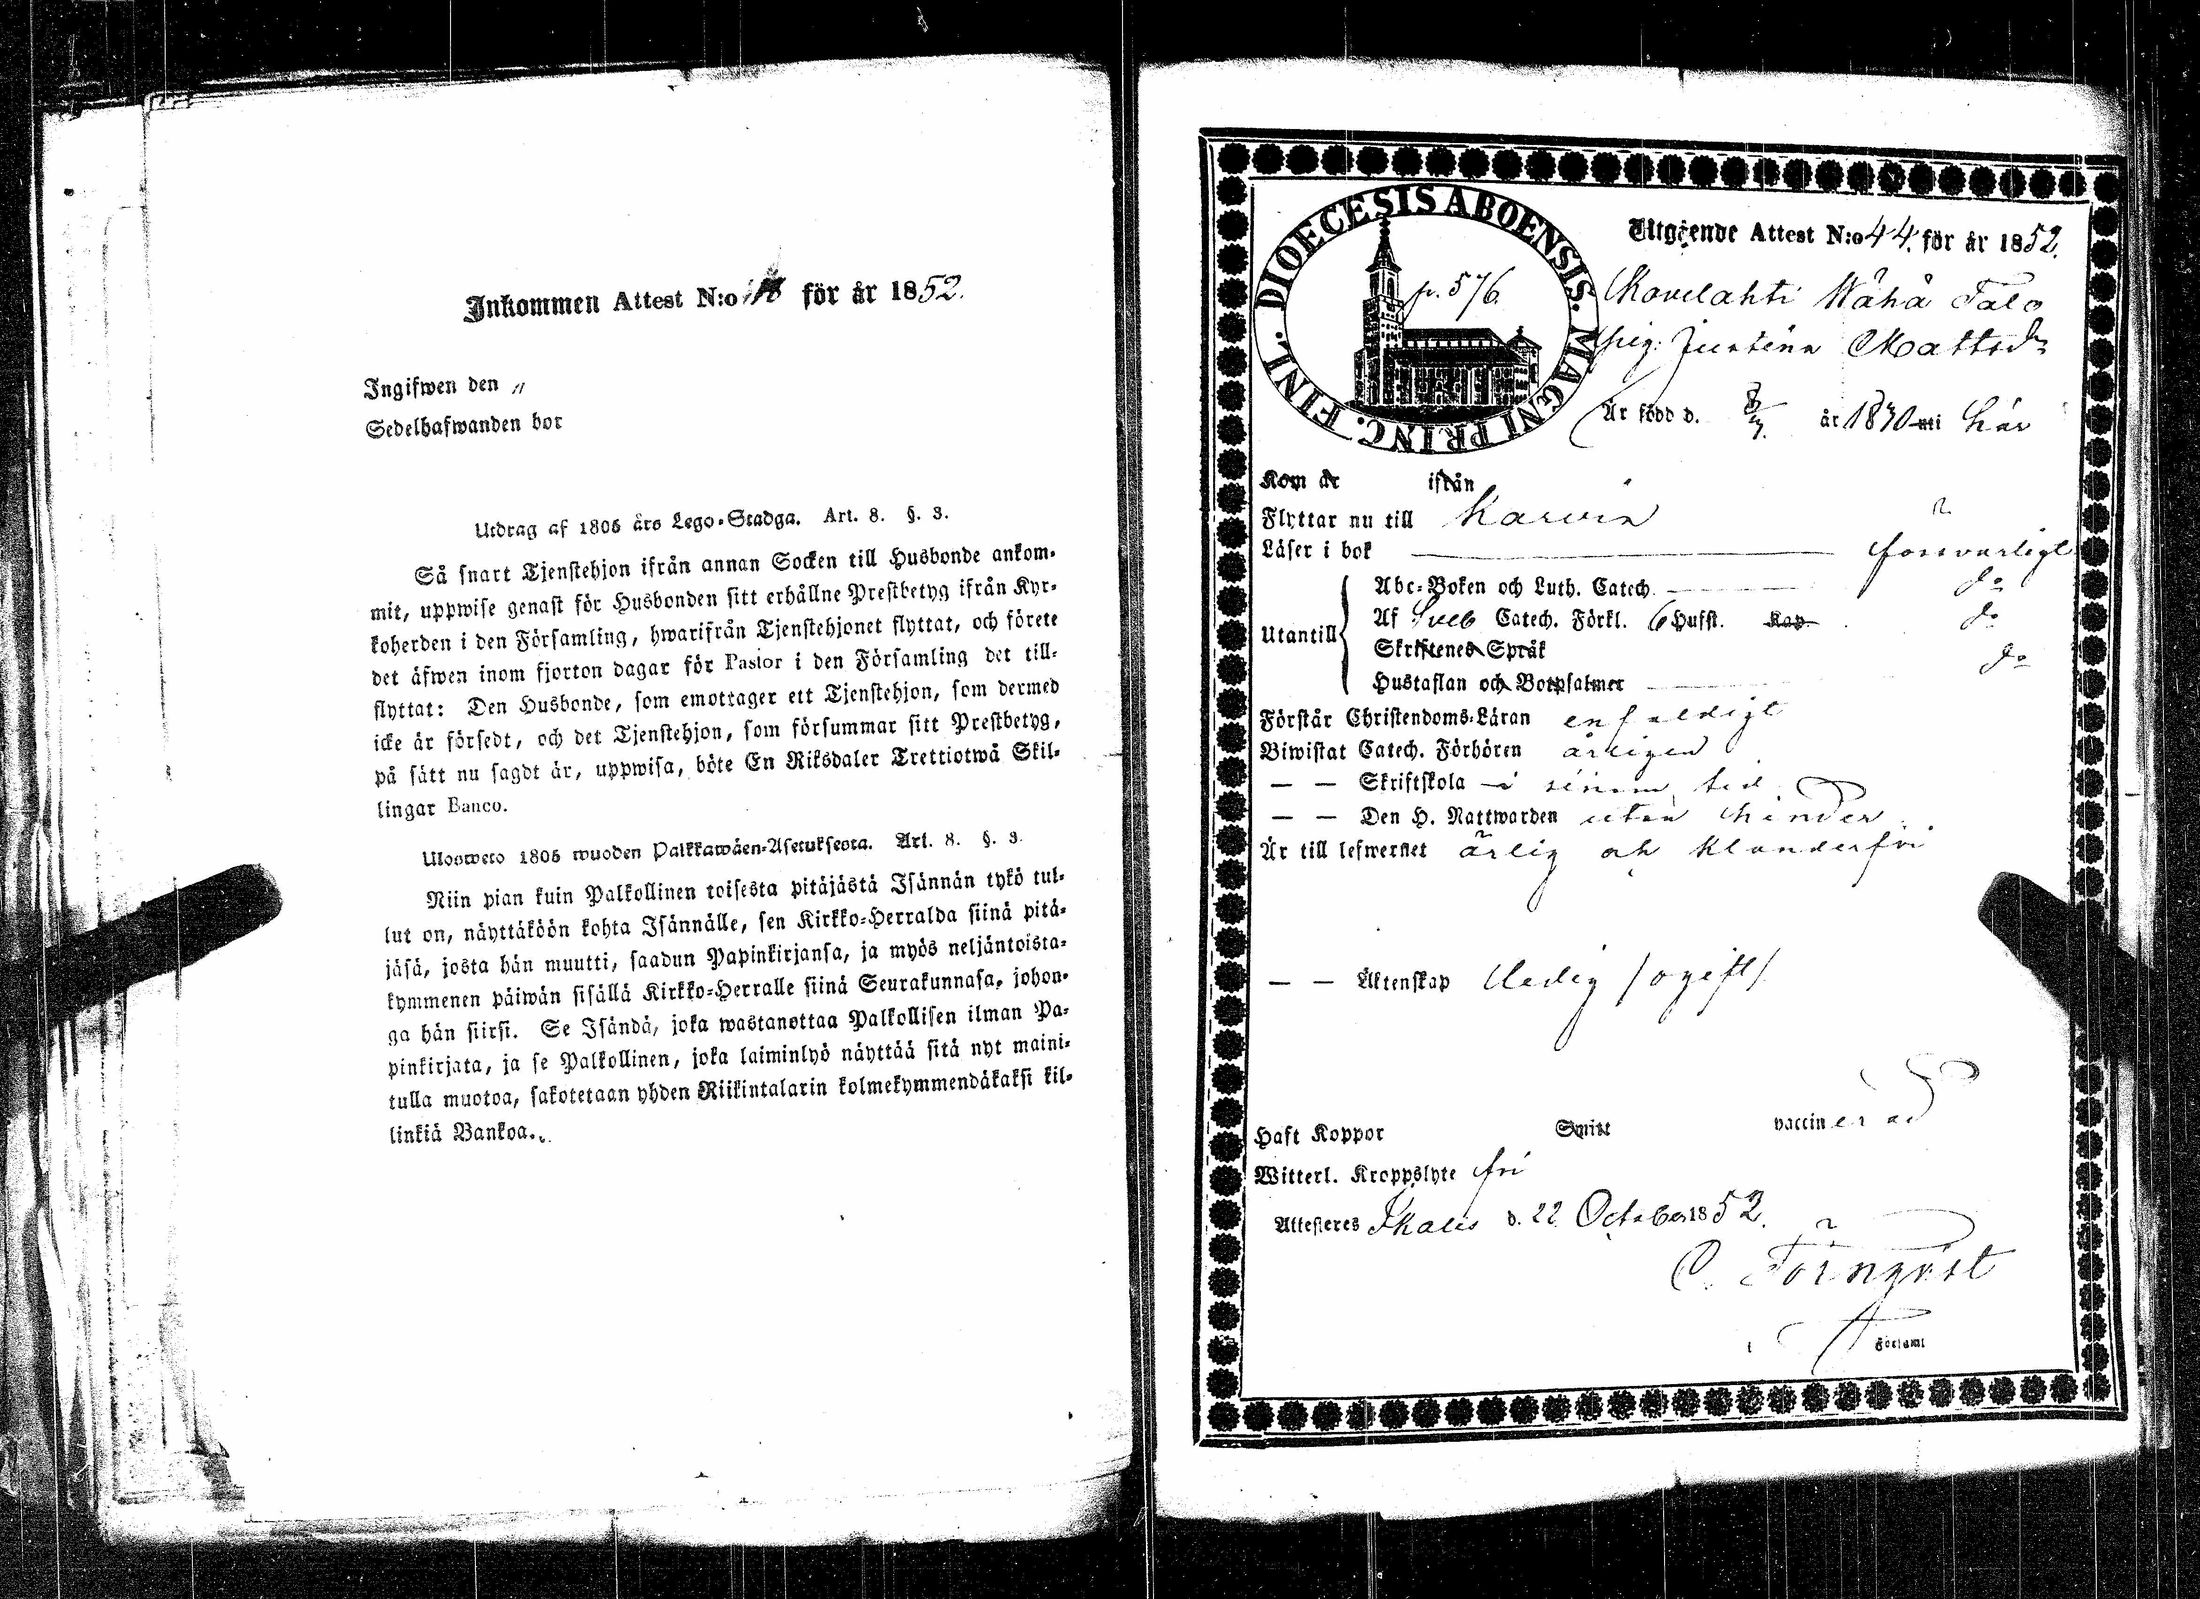 Inkommen Attest N:o 18 för år 1852.
Ingifwen den "
Sedelhafwanden bor
Utdrag af 1805 års Lego-Stadga. Art. 8. §. 3.
Så snart Tjenstehjon ifrån annan Socken till Husbonde ankom-
mit, uppwise genast för Husbonden sitt erhållne Prestbetyg ifrån Kyr-
koherden i den Församling, hwarifrån Tjenstehjonet flyttat, och förete
det äfwen inom fjorton dagar för Pastor i den Församling det till-
flyttat: Den Husbonde, som emottager ett Tjenstehjon, som dermed
icke är försedt, och det Tjenstehjon, som försummar sitt Prestbetyg,
på sätt nu sagdt är, uppwisa, böte En Riksdaler Trettiotwå Skil-
lingar Banco.
Ulosweto 1805 wuoden Palkkawäen-Asetuksesta. Art. 8. §. 3.
Niin pian kuin Palkollinen toisesta pitäjästä Isännän tykö tul-
lut on, näyttäköön kohta Isännälle, sen Kirkko-Herralda siinä pitä-
jäsä, josta hän muutti, saadun Papinkirjansa, ja myös neljäntoista-
kymmenen päiwän sisällä Kirkko-Herralle siinä Seurakunnasa, johon-
ga hän siirsi. Se Isändä, joka wastanottaa Palkollisen ilman Pa-
pinkirjata, ja se Palkollinen, joka laiminlyö näyttää sitä nyt maini-
tulla muotoa, sakotetaan yhden Riikintalarin kolmekymmendäkaksi kil-
linkiä Bankoa.
DIOECESIS ABOENSIS. MAGNI PRINC. FINL.
p. 576.
Utgående Attest N:o 44. för år 1852.
Kovelahti Wähä Talo
pig. Justina Mattsdr
Är född d. 8/7. år 1830 uti här
Kom år ifrån
Flyttar nu till Karvia
Läser i bok försvarligt
Utantill
Abc-Boken och Luth. Catech. do
Af Sveb Catech. Förkl. 6 Hufst. Kap. do
Skriftenes Språk
Hustaflan och Botpsalmer do
Förstår Christendoms-Läran enfaldigt
Biwistat Catech. Förhören årligen
— — Skriftskola i sinom tid
— — Den H. Nattwarden utan hinder
Är till lefwernet ärlig och klanderfri
— — Äktenskap Ledig /ogift/
Haft Koppor Smitt vaccinerad
Witterl. Kroppslyte fri
Attesteras Ikalis d. 22 October 1852.
C. Törnqvist